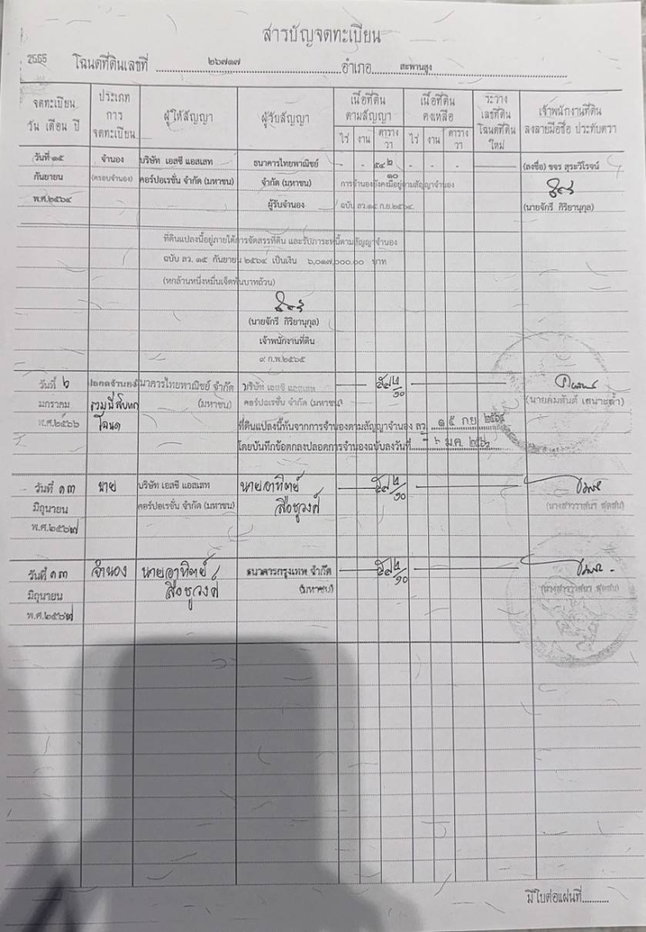 สารบัญจดทะเบียน
2565 โฉนดที่ดินเลขที่ ๒๖๗๑๗ อำเภอ สะพานสูง
จดทะเบียน วัน เดือน ปี
ประเภท การ จดทะเบียน
ผู้ให้สัญญา
ผู้รับสัญญา
เนื้อที่ดิน ตามสัญญา
ไร่ งาน ตาราง วา
เนื้อที่ดิน คงเหลือ
ไร่ งาน ตาราง วา
ระวาง เลขที่ดิน โฉนดที่ดิน ใหม่
เจ้าพนักงานที่ดิน ลงลายมือชื่อ ประทับตรา
วันที่ ๑๕ จำนอง บริษัท เอสซี แอสเสท ธนาคารไทยพาณิชย์ - - ๕๔ ๒/๑๐ - - - (ลงชื่อ) ขจร สุระวิโรจน์
กันยายน (ครอบจำนอง) คอร์ปอเรชั่น จำกัด (มหาชน) จำกัด (มหาชน) การจำนองยังคงมีอยู่ตามสัญญาจำนอง
พ.ศ.๒๕๖๔ ผู้รับจำนอง ฉบับ ลว.๑๕ ก.ย.๒๕๖๔. (นายจักรี กิริยานุกูล)
ที่ดินแปลงนี้อยู่ภายใต้การจัดสรรที่ดิน และรับภาระหนี้ตามสัญญาจำนอง
ฉบับ ลว. ๑๕ กันยายน ๒๕๖๔ เป็นเงิน ๖,๐๑๗,๐๐๐.๐๐ บาท
(หกล้านหนึ่งหมื่นเจ็ดพันบาทถ้วน)
(นายจักรี กิริยานุกูล)
เจ้าพนักงานที่ดิน
๙ ก.พ.๒๕๖๕
วันที่ ๖ ปลอดจำนอง ธนาคารไทยพาณิชย์ จำกัด บริษัท เอสซี แอสเสท ๕๔ ๒/๑๐
มกราคม รวมสี่สิบหก (มหาชน) คอร์ปอเรชั่น จำกัด (มหาชน)
พ.ศ.๒๕๖๖ โฉนด ที่ดินแปลงนี้พ้นจากการจำนองตามสัญญาจำนอง ลว. ๑๕ กย ๒๕๖๔
โดยบันทึกข้อตกลงปลอดการจำนองฉบับลงวันที่ ๖ ม.ค. ๒๕๖๖
วันที่ ๑๓ ขาย บริษัท เอสซี แอสเสท นายอาทิตย์ ๕๔ ๒/๑๐
มิถุนายน คอร์ปอเรชั่น จำกัด (มหาชน) สือชูวงศ์
พ.ศ.๒๕๖๗
วันที่ ๑๓ จำนอง นายอาทิตย์ ธนาคารกรุงเทพ จำกัด ๕๔ ๒/๑๐
มิถุนายน สือชูวงศ์ (มหาชน)
พ.ศ.๒๕๖๗
มีใบต่อแผ่นที่